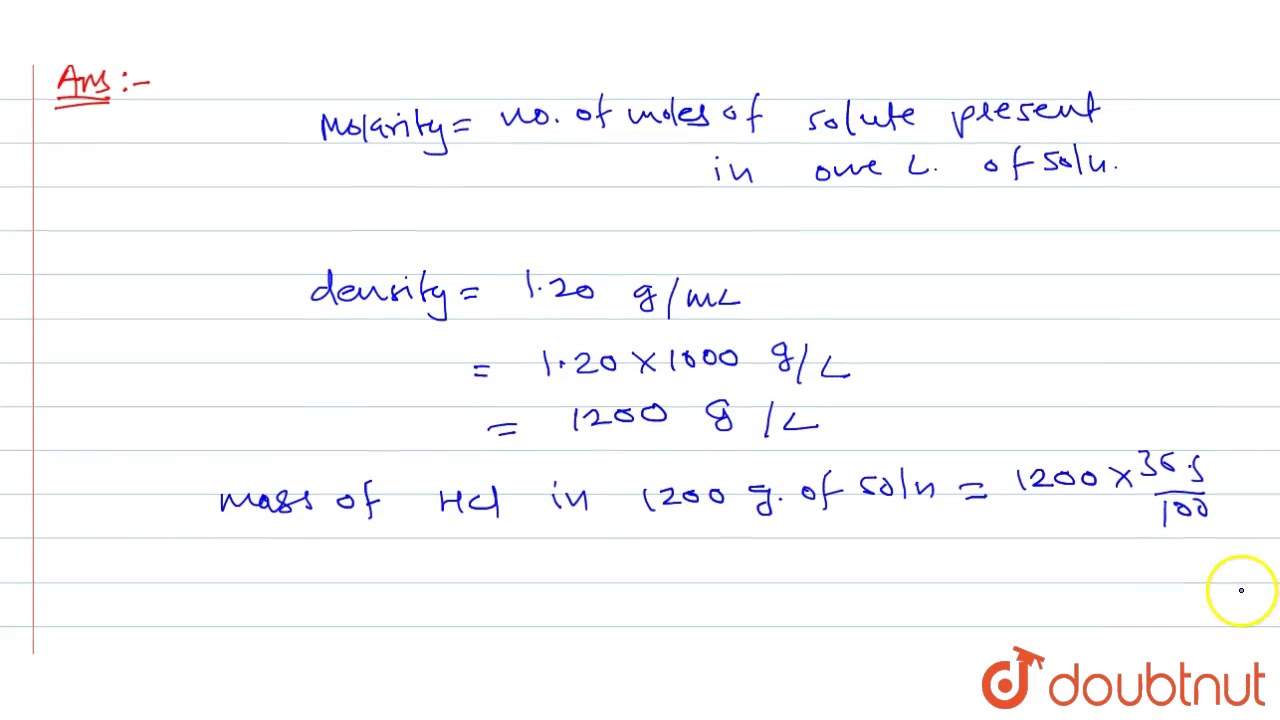 Ans :-
Molarity = no. of moles of solute present
in one L. of soln.
density = 1.20 g/mL
= 1.20 × 1000 g/L
= 1200 g/L
mass of HCl in 1200 g. of soln = 1200 × 36.5/100
doubtnut